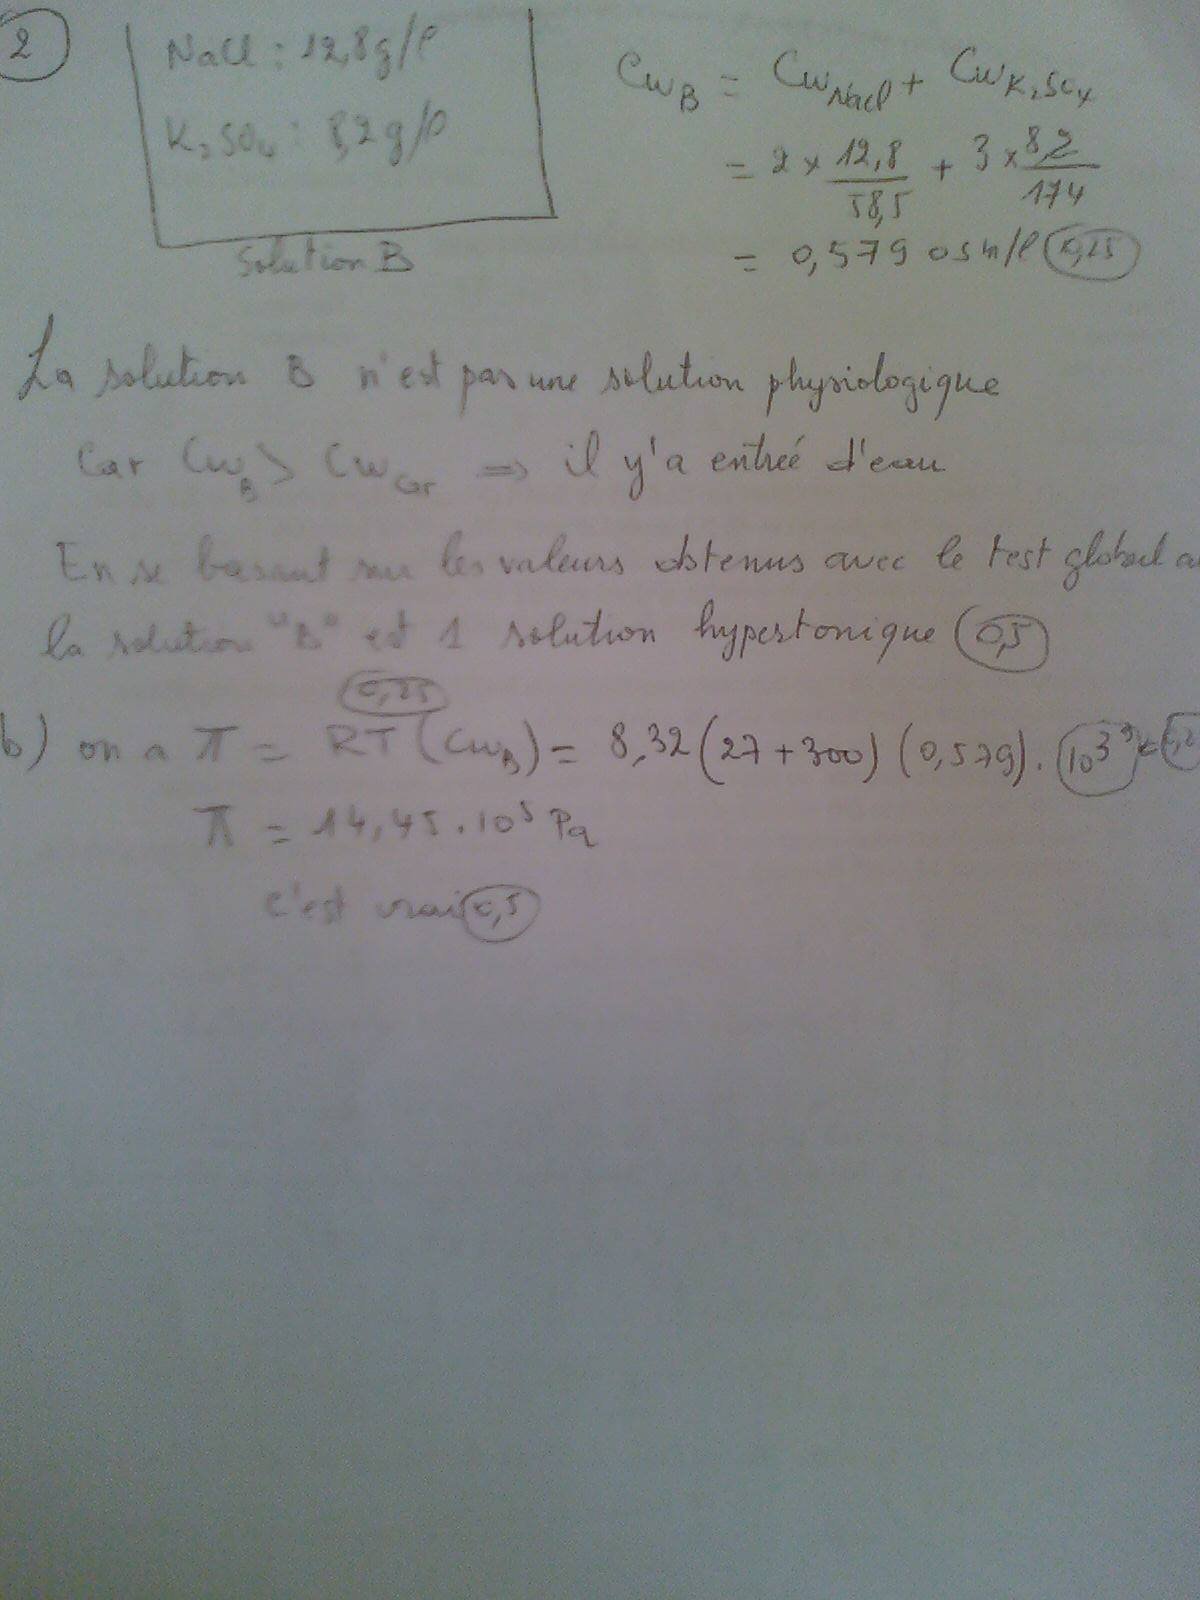 2
NaCl : 12,8g/l
K2SO4 : 8,2g/l
Solution B
CωB = CωNaCl + CωK2SO4
= 2 × 12,8/58,5 + 3 × 8,2/174
= 0,579 osm/l 0,25
La solution B n'est pas une solution physiologique
Car CωB > CωGr => il y'a entrée d'eau
En se basant sur les valeurs obtenus avec le test global
la solution "B" est 1 solution hypertonique 0,5
0,25
b) on a π = RT (CωB) = 8,32 (27+300) (0,579) . 10^3
π = 14,45.10^5 Pa
C'est vrai 0,5